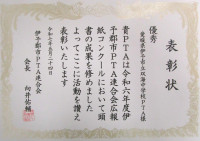 表彰状
優秀
愛媛県伊予市立双海中学校PTA様
貴PTAは令和六年度伊
予郡市PTA連合会広報
紙コンクールにおいて頭
書の成果を修めました
よってここに活動を讃え
表彰いたします
令和七年五月二十四日
伊予郡市PTA連合会
会長 向井佑輔